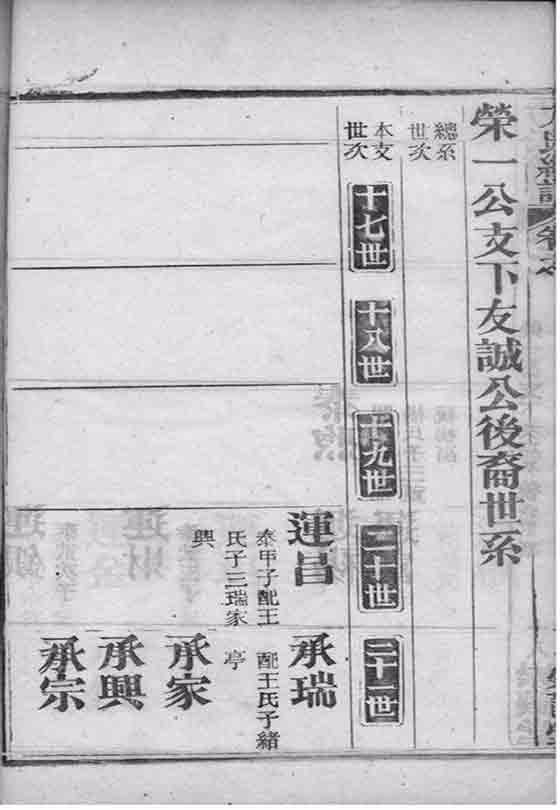 榮一公支下友誠公後裔世系
總系世次
本支世次
十七世
十八世
十九世
二十世
二十一世
運昌
泰甲子配王
氏子三瑞家
興
承瑞
配王氏子緒
亭
承家
承興
承宗